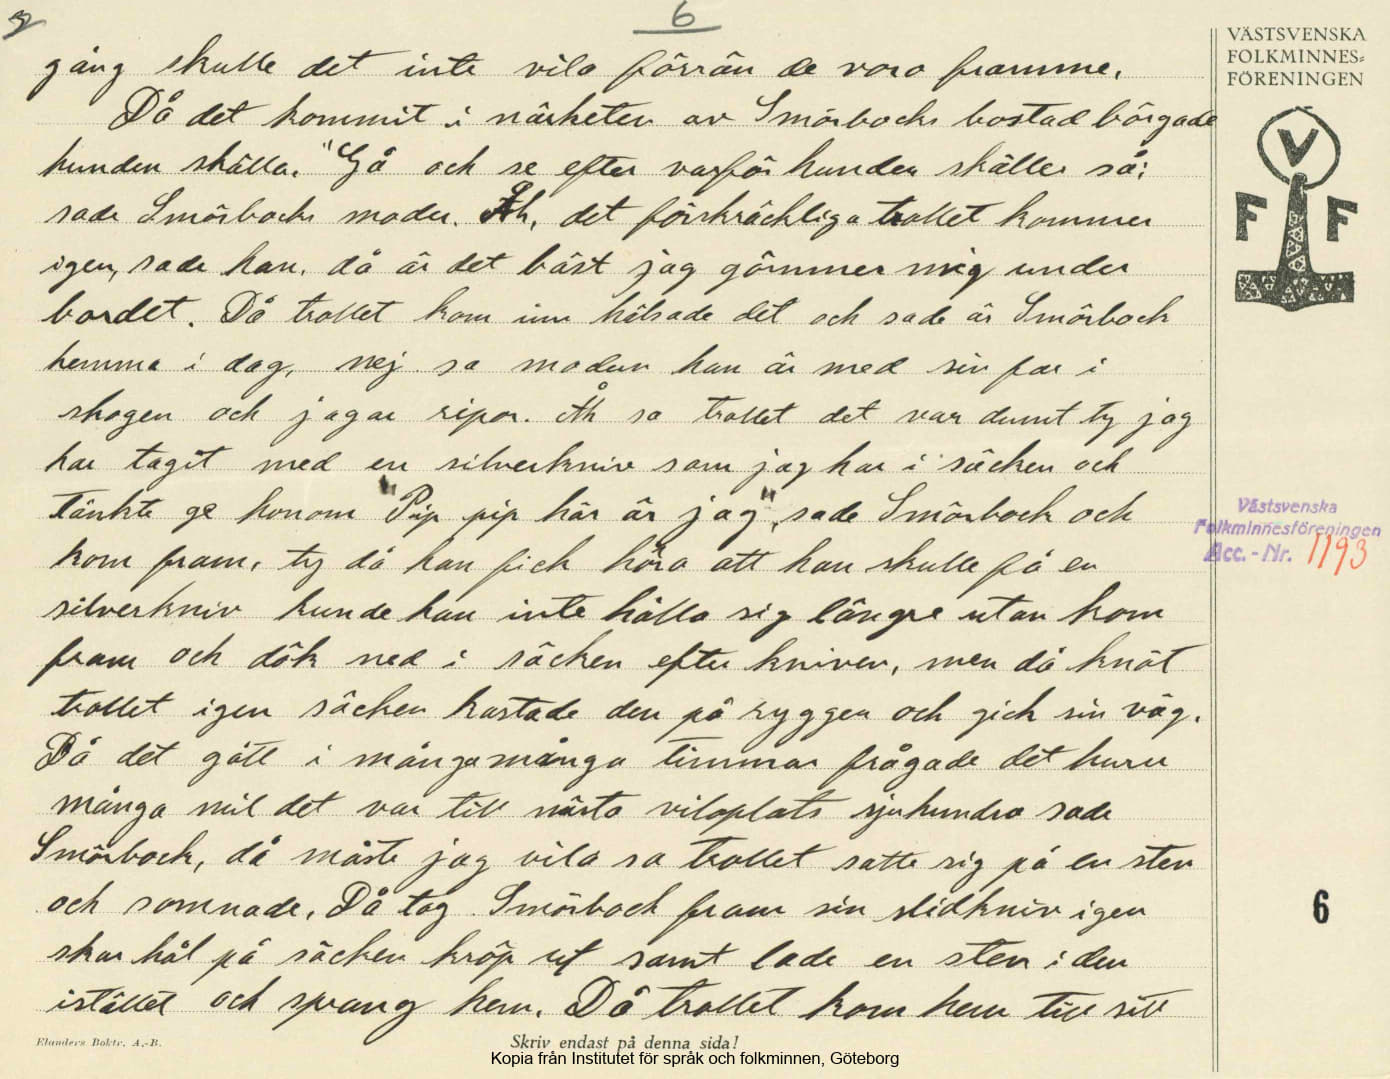 6
gång skulle det inte vila förrän de voro framme.
Då det kommit i närheten av Smörbocks bostad börgade
hunden skälla. "Gå och se efter varför hunden skäller så;
sade Smörbocks moder. Åh, det förskräckliga trollet kommer
igen, sade han, då är det bäst jag gömmer mig under
bordet. Då trollet kom inn hälsade det och sade är Smörbock
hemma i dag, nej sa modern han är med sin far i
skogen och jagar ripor. Åh sa trollet det var dumt ty jag
har tagit med en silverkniv som jag har i säcken och
tänkte ge honom "Pip pip här är jag", sade Smörbock och
kom fram, ty då han fick höra att han skulle få en
silverkniv kunde han inte hålla sig längre utan kom
fram och dök ned i säcken efter kniven, men då knöt
trollet igen säcken kastade den på ryggen och gick sin väg.
Då det gått i mångamånga timmar frågade det huru
många mil det var till nästa viloplats sjuhundra sade
Smörbock, då måste jag vila sa trollet satte sig på en sten
och somnade. Då tog Smörbock fram sin slidkniv igen
skar hål på säcken kröp ut samt lade en sten i den
istället och sprang hem. Då trollet kom hem till sitt
VÄSTSVENSKA
FOLKMINNES-
FÖRENINGEN
V
F F
Västsvenska
Folkminnesföreningen
Acc.-Nr. 1193
6
Elanders Boktr. A.-B.
Skriv endast på denna sida!
Kopia från Institutet för språk och folkminnen, Göteborg